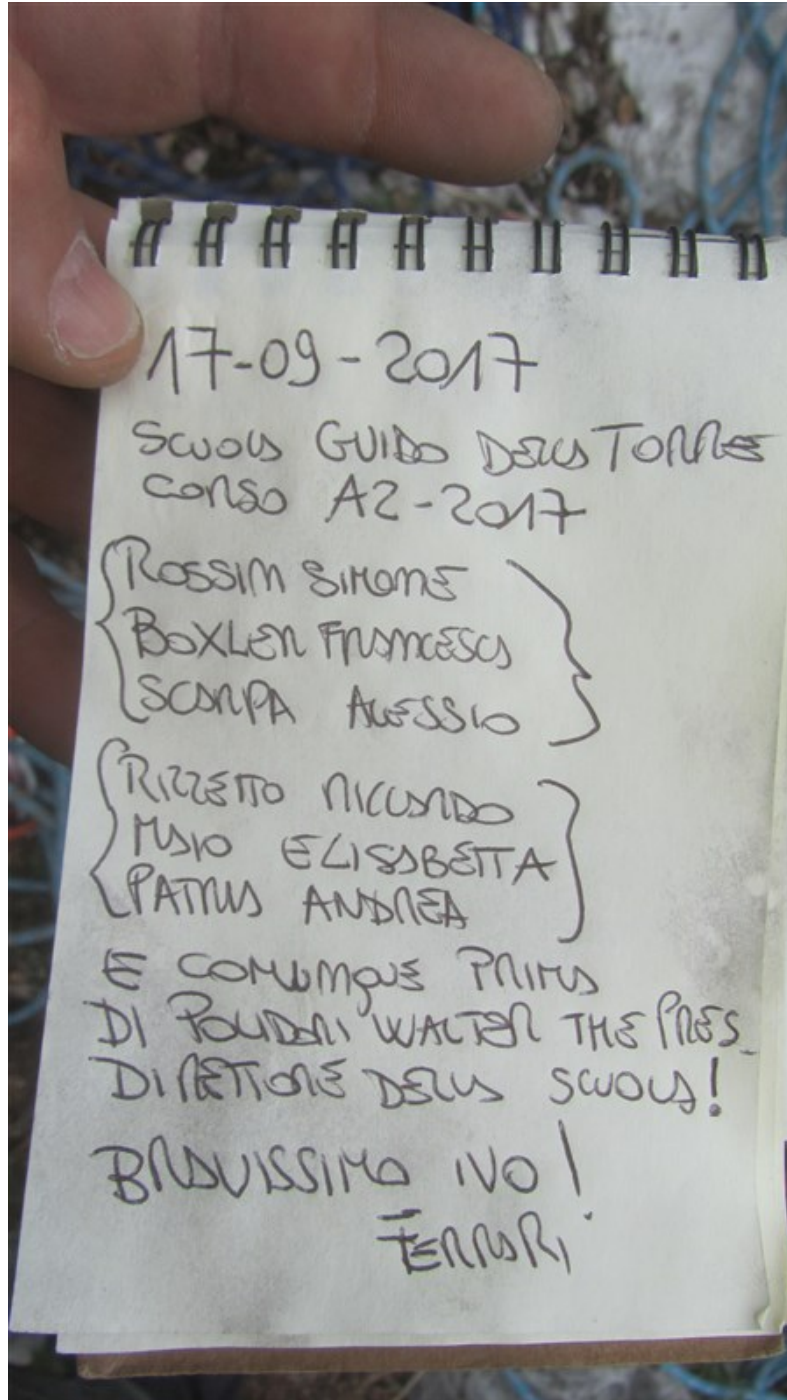 17-09-2017
SCUOLA GUIDO DELLA TORRE
CORSO A2-2017
ROSSIN SIMONE
BOXLER FRANCESCA
SCARPA ALESSIO
RIZZETTO RICCARDO
MAIO ELISABETTA
PATRUS ANDREA
E COMUNQUE PRIMA
DI POLIDORI WALTER THE PRES_
DIRETTORE DELLA SCUOLA!
BRAVISSIMO IVO!
FERRARI